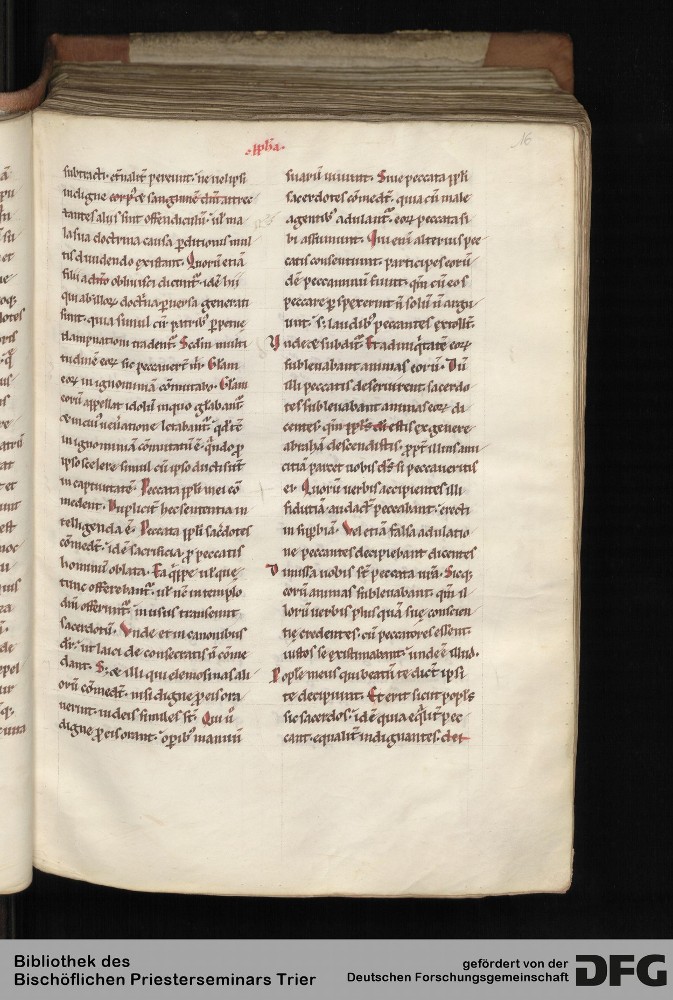 .pph̄a.
16
subtracti. et̄nalit̄ pereunt. ne uel ipsi
indigne corp̄ ⁊ sanguinē dn̄i attrec
tantes aliis sint offendiculū. ul̓ ma
la sua doctrina causa ꝑditionis mul
tis
existant. Quorū etiā
filii a dn̄o obliuisci dicunt᷑. idē hii
qui ab illoꝝ doctrina ꝑuersa generati
sunt. quia simul cū patrib; ꝑpetue
dampnationi tradent᷑. Sedm multi
tudinē eoꝝ sic peccauert̄ m̄. Glam̄
eoꝝ in ignominiā cōmutabo. Glam̄
eorū appellat idolū in quo gl̄abant᷑
letabant᷑. qd̓
in ignominiā cōmutatū ē. qn̄do ꝓ
ipso scelere simul cū ipso ducti sunt
in captiuitatē. Peccata ppl̓i mei cō
medent. Dupliciť hec sententia in
telligenda ē. Peccata ppl̓i sac̓dotes
cōmedt̄. idē sacrificia ꝓ peccatis
hominū oblata. Ea
tunc offerebant᷑. ul̓ nc̄ in templo
dn̄i offerunt᷑. in usus transeunt
sacerdotū. Vnde et in canonibus
dr̄. ut laici de consecratis n̄ come
dant. S; ⁊ illi qui elemosinas ali
orū cōmedt̄. nisi digne ꝓ eis ora
uerint. iudeis similes st̄. Qui ů
digne ꝓ eis orant. op̄ib; manuū
suarū uiuunt. Siue peccata ppl̓i
sacerdotes cōmedt̄. quia cū male
agentib; adulant᷑. eoꝝ peccata si
bi assumunt. Qui enī alterius pec
catis consentiunt. participes eorū
dē peccaminū fiunt. qm̄ cū eos
peccare ꝑspexerint n̄ solū n̄ argu
unt. s; laudib; peccantes extollt̄.
Vnde ⁊ subdit᷑. Et ad iniq̓tatē eoꝝ
subleuabant animas eorū. Dū
illi peccatis deseruirent. sacerdo
tes subleuabant animas eoꝝ di
centes. qm̄ ppl̓s dī estis ex genere
abrahā descendistis. ꝓpt̄ illius ami
citiā parcet uobis ds̄ si peccaueritis
ei. Quorū uerbis accipientes illi
fidutiā audact̄ peccabant. erecti
in supbiā. Vel etiā falsa adulatio
ne peccantes decipiebant dicentes
Dimissa uobis st̄ peccata ura. Sicq;
eorū animas subleuabant. qm̄ il
lorum uerbis plus quā sue conscien
tie credentes. cū peccatores essent.
iustos se existimabant. unde ē illud.
Popl̓e meus qui beatū te dict̄ ipsi
te decipiunt. Et erit sicut popl̓s
sic sacerdos. idē quia eq̓lit̄ pec
cant. equalit̄ indignantes. dei
Bibliothek des
Bischöflichen Priesterseminars Trier
gefördert von der
Deutschen Forschungsgemeinschaft
DFG